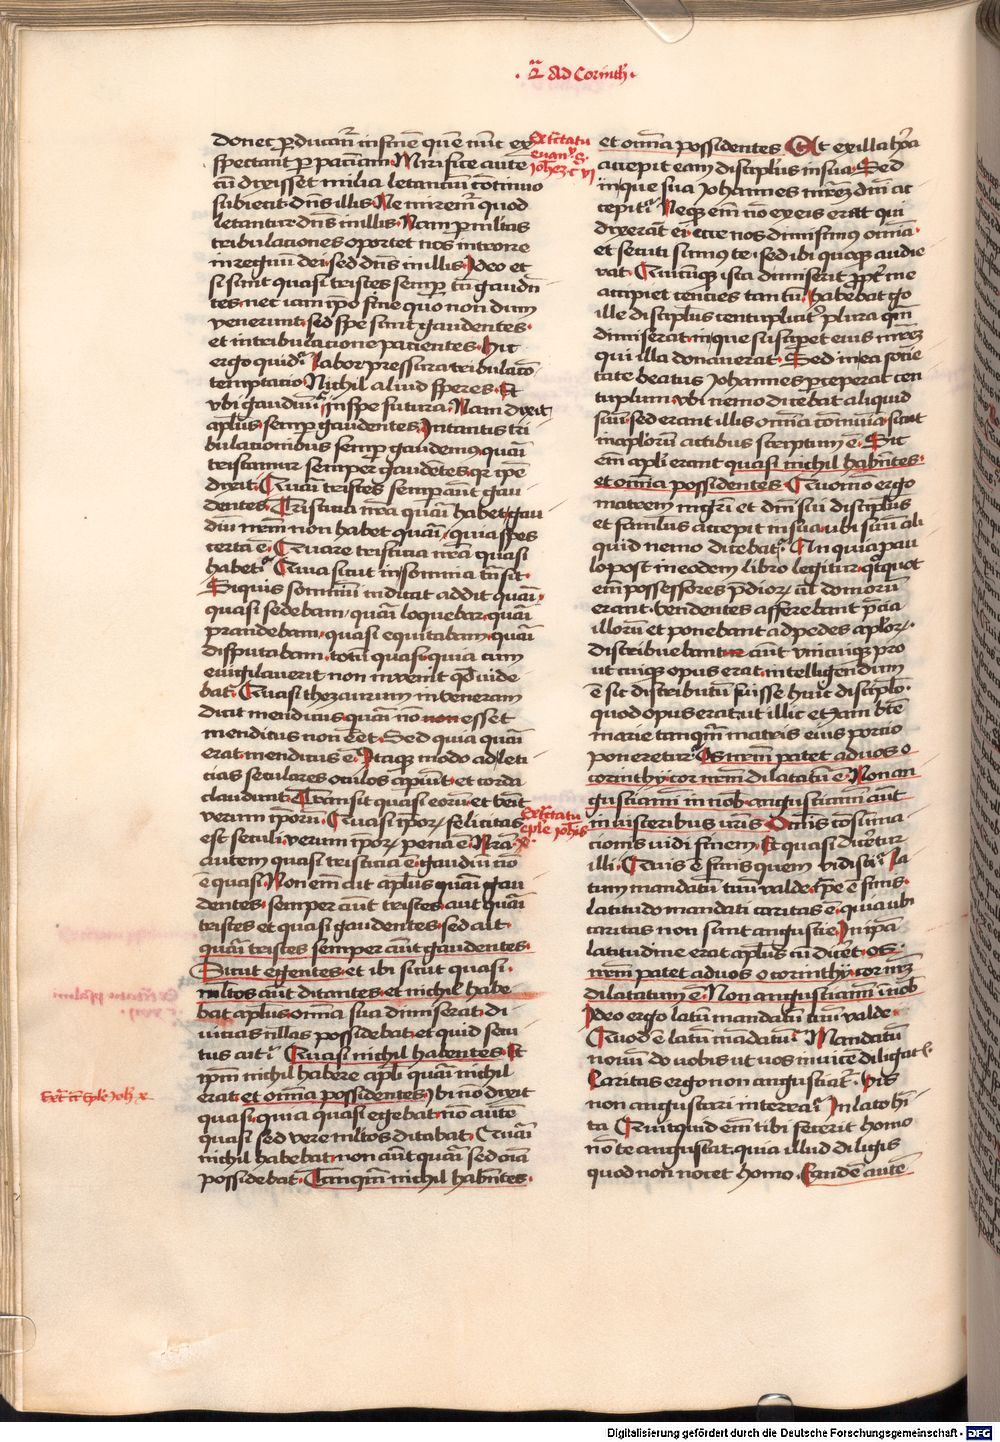 · 2ª ad Corinth ·
donec perducantur in finem quem nunc ex
spectant per pacientiam. Mirifice autem
cum dixisset milia letancium continuo
subiecit dominus in illis. Ne miremur quod
letantur dominus in illis. Nam per multas
tribulationes oportet nos introire
in regnum dei. sed dominus in illis. Ideo et
si sunt quasi tristes semper tamen gauden
tes. nec iam ipso fine quo nondum
venerunt. sed spe sunt gaudentes.
et in tribulatione pacientes. Hic
ergo quid? labor pressura tribulatio
temptatio. Nichil aliud speres. Et
vbi gaudium? in spe futura. Nam dixit
apostolus. semper gaudentes. In tantis tri
bulationibus semper gaudemus. quasi
tristamur semper gaudetes. quia ipse
dixit. Quasi tristes semper autem gau
dentes. Tristicia nostra quasi habet. gau
dium nostrum non habet quasi. quia spes
certa est. Quare tristicia nostra quasi
habet? Quia sicut in somnia transit.
Siquis somnium indicat addit quasi.
quasi sedebam. quasi loquebar. quasi
prandebam. quasi equitabam. quasi
disputabam. totum quasi. quia cum
euigilauerit non inuenit quod vide
bat. Quasi thezaurum inveneram
dicit mendicus. quasi non non esset
mendicus non esset. Sed quia quasi
erat. mendicus est. Itaque modo ad leti
cias seculares oculos aperiunt. et corda
claudunt. Transit quasi eorum. et venit
verum ipsorum. Quasi ipsorum felicitas
est seculi. verum ipsorum pena est. Nostra
autem quasi tristicia est. gaudium non
est quasi. Non enim ait apostolus quasi gau
dentes. semper autem tristes. aut quasi
tristes et quasi gaudentes. sed ait.
quasi tristes semper autem gaudentes.
Sicut egentes. et ibi sicut quasi.
multos autem ditantes. et nichil habe
bat apostolus. omnia sua dimiserat. di
uitias nullas possidebat. et quid secu
tus ait? Quasi nichil habentes. Et
ipsum nichil habere apostoli quasi nichil
erat. et omnia possidentes. Ibi non dixit
quasi. quia quasi egebat. non autem
quasi sed vere multos ditabat. Quasi
nichil habebat. non autem quasi sed omnia
possidebat. Tamquam nichil habentes.
Ex tractatu
euan. s.
Johannis c vi
Ex tractatu
epistole Johannis
x
Ex tractatu epistole Joh x
et omnia possidentes. Et ex illa hora
accepit eam discipulus in sua. Sed
in que sua Johannes matrem domini ac
cepit? Neque enim non ex eis erat qui
dixerat ei. ecce nos dimisimus omnia.
et secuti sumus te. sed ibi quoque audie
rat. Quicumque ista dimiserit propter me
accipiet cencies tantum. habebat ergo
ille discipulus centupliciter plura quam
dimiserat. in que susciperet eius matrem
qui illa donauerat. Sed in ea socie
tate beatus Johannes perceperat cen
tuplum. vbi nemo dicebat aliquid
suum. sed erant illis omnia communia. sicut
in apostolorum actibus scriptum est. Sic
enim apostoli erant quasi nichil habentes.
et omnia possidentes. Quomodo ergo
matrem magistri et domini sui discipulus
et famulus accepit in sua. ubi suum ali
quid nemo dicebat? An quia pau
lo post in eodem libro legitur. quotquot
enim possessores prediorum vel domorum
erant. vendentes afferebant precia
illorum et ponebant ad pedes apostolorum.
distribuebantur autem vnicuique pro
ut cuique opus erat. intelligendum
est sic distributum fuisse huic discipulo.
quod opus erat. ut illic etiam beate
marie tamquam matris eius portio
poneretur. Os nostrum patet ad vos o
corinthy. cor nostrum dilatatum est. Non an
gustiamini in nobis. angustiamini autem
in visceribus vestris. Omnis consuma
cionis vidi finem. Et quasi diceretur
illi. Quis est finis quem vidisti? La
tum mandatum tuum valde. spe est finis.
latitudo mandati caritas est. quia ubi
caritas non sunt angustie. In ipsa
latitudine erat apostolus cum diceret. os
nostrum patet ad vos o corinthy. cor nostrum
dilatatum est. Non angustiamini in nobis
Ideo ergo latum mandatum tuum valde.
Quod est latum mandatum? Mandatum
nouum do vobis ut vos inuicem diligatis.
Caritas ergo non angustiatur. Vis
non angustari in terra? In lato habi
ta. Quitquid enim tibi fecerit homo
non te angustat. quia illud diligis
quod non nocet homo. Eandem autem
Digitalisierung gefördert durch die Deutsche Forschungsgemeinschaft - DFG